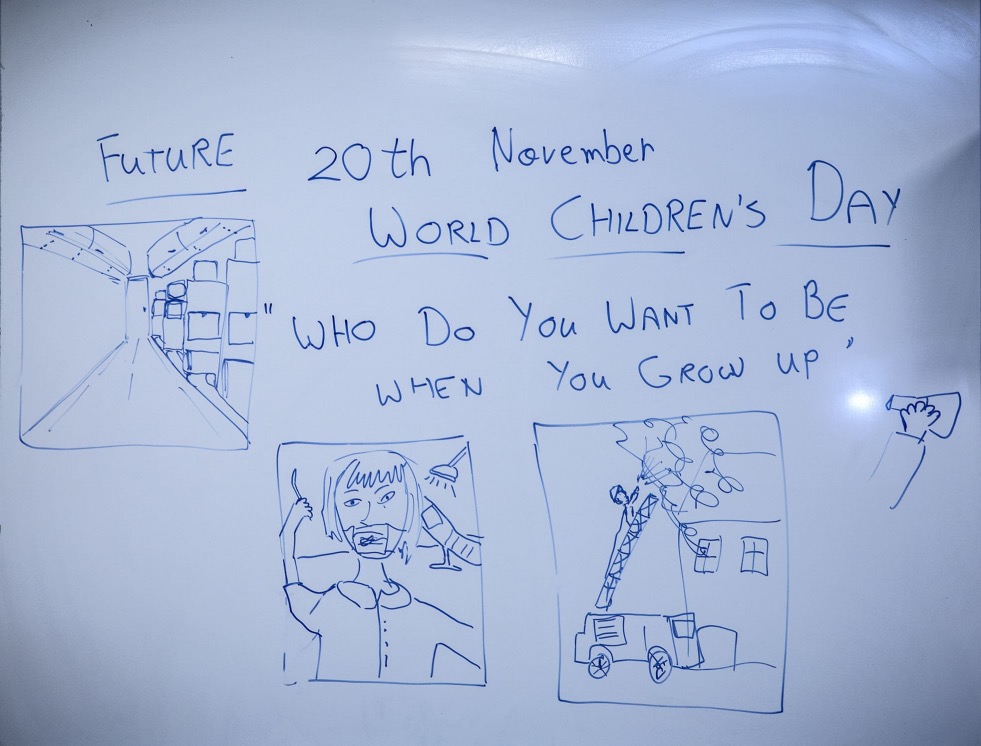 FUTURE
20th November
WORLD CHILDREN'S DAY
"WHO DO YOU WANT TO BE
WHEN YOU GROW UP"